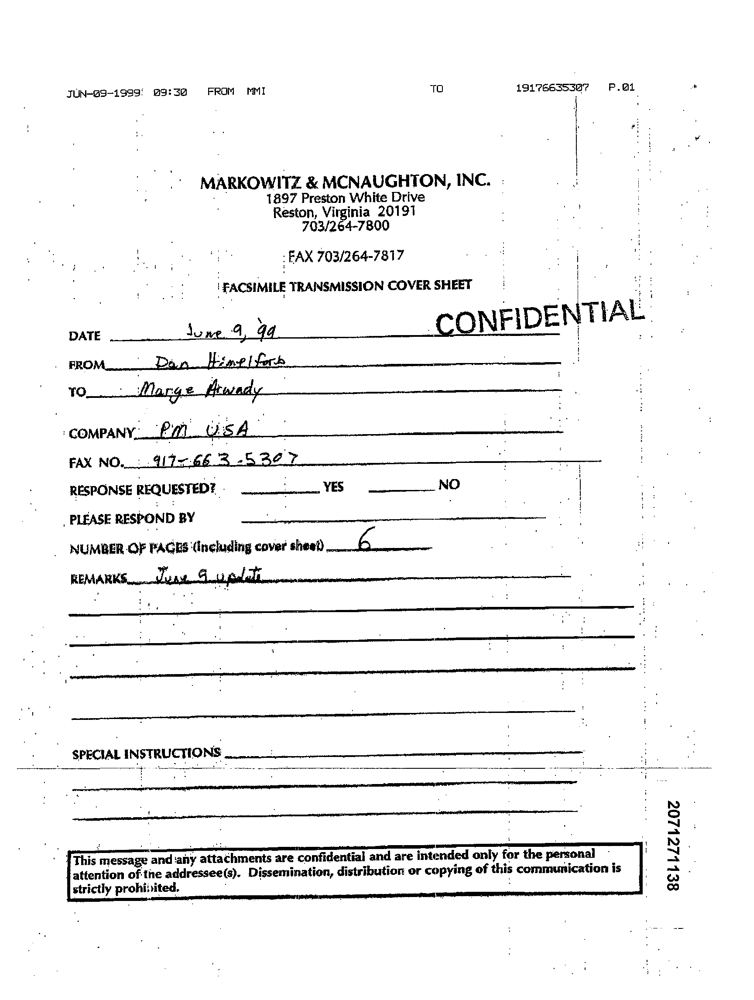 JUN-09-1999 09:30 FROM MMI TO 19176635307 P.01
MARKOWITZ & MCNAUGHTON, INC.
1897 Preston White Drive
Reston, Virginia 20191
703/264-7800
FAX 703/264-7817
FACSIMILE TRANSMISSION COVER SHEET
CONFIDENTIAL
DATE June 9, 99
FROM Dan Himelfarb
TO Marge Arwady
COMPANY PM USA
FAX NO. 917-663-5307
RESPONSE REQUESTED? YES NO
PLEASE RESPOND BY
NUMBER OF PAGES (including cover sheet) 6
REMARKS June 9 update
SPECIAL INSTRUCTIONS
This message and any attachments are confidential and are intended only for the personal
attention of the addressee(s). Dissemination, distribution or copying of this communication is
strictly prohibited.
2071271138